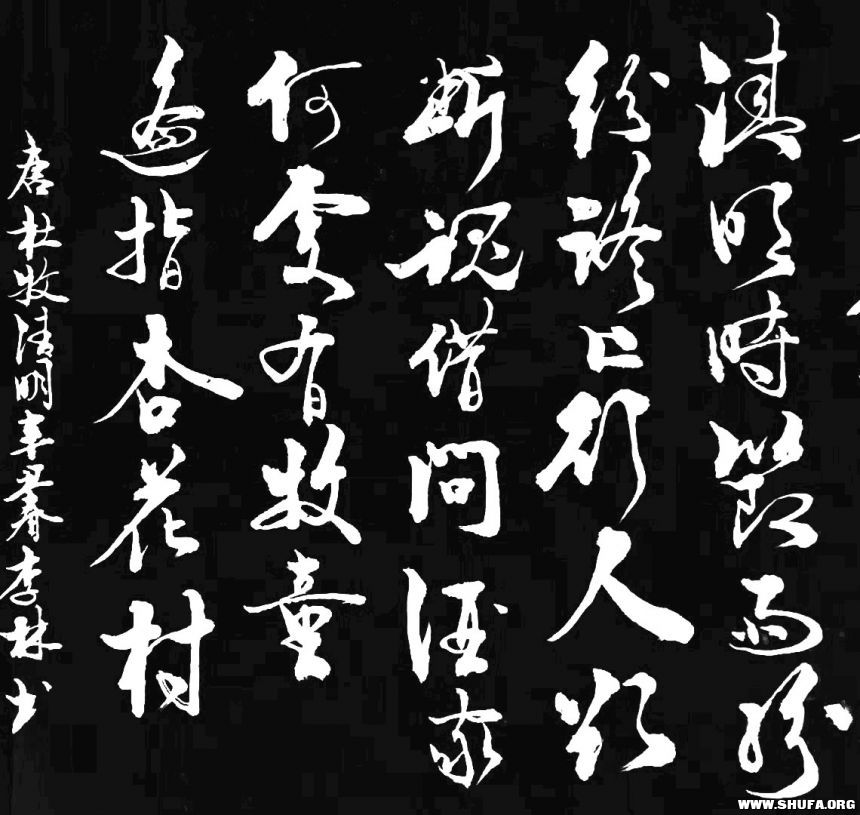 清明時節雨紛
紛路上行人欲
斷魂借問酒家
何處有牧童
遥指杏花村
唐杜牧清明辛春李林书
WWW.SHUFA.ORG